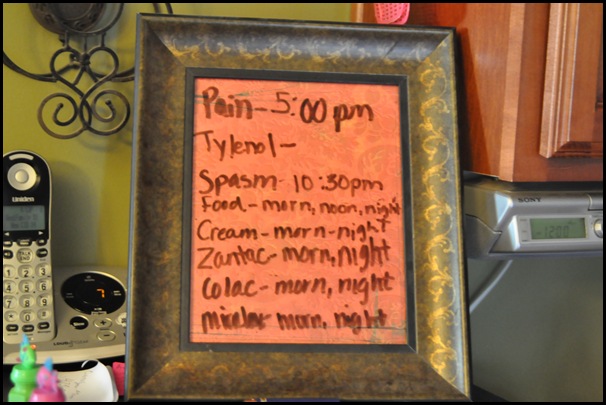 Pain - 5:00 pm
Tylenol -
Spasm - 10:30pm
Food - morn, noon, night
Cream - morn - night
Zantac - morn, night
Colac - morn, night
miralax morn, night
Uniden
SONY
12:00
7